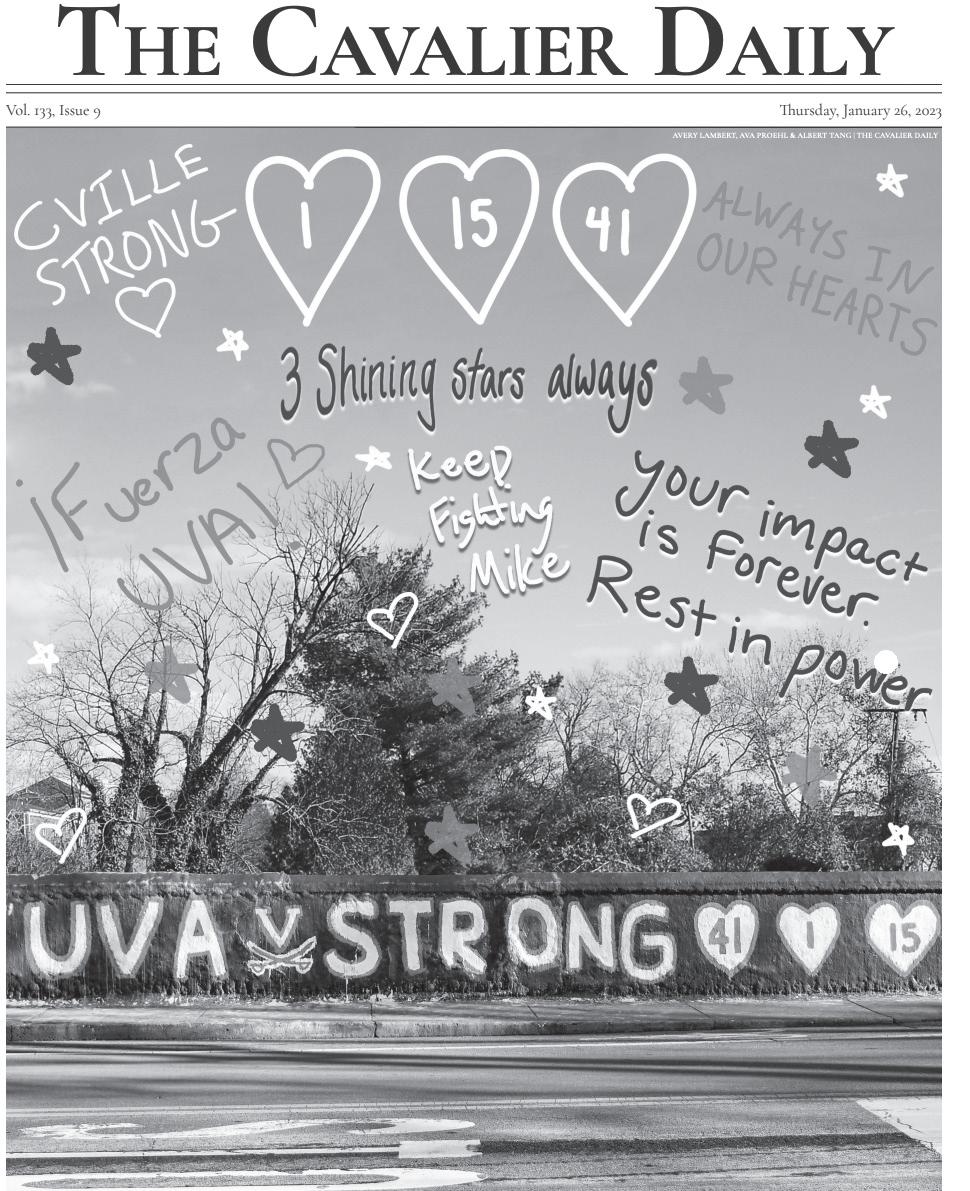 THE CAVALIER DAILY
Vol. 133, Issue 9
Thursday, January 26, 2023
AVERY LAMBERT, AVA PROEHL & ALBERT TANG | THE CAVALIER DAILY
CVILLE
STRONG
1
15
41
ALWAYS IN
OUR HEARTS
3 Shining stars always
¡Fuerza
UVA!
Keep
Fighting
Mike
your impact
is forever.
Rest in power
UVA V STRONG 41 1 15